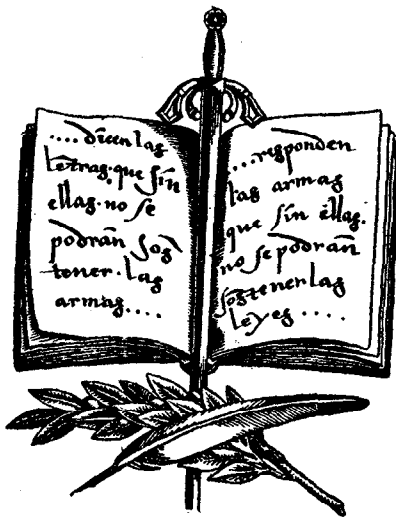 ....dicen las
letras, que sin
ellas no se
podrán sos
tener las
armas....
...responden
las armas
que sin ellas.
no se podrán
sostener las
leyes....